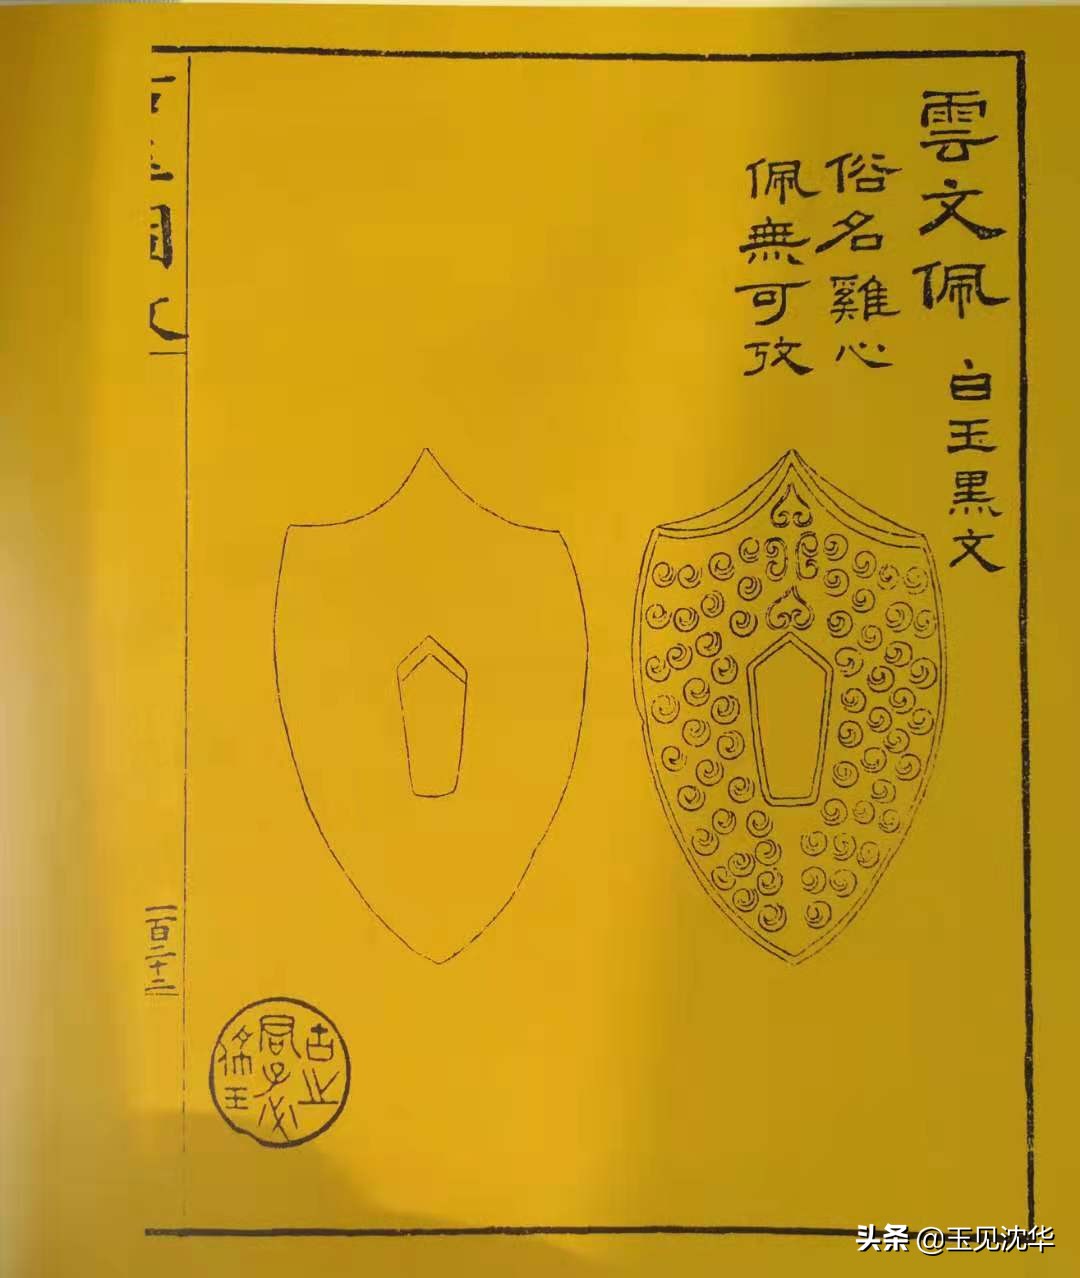 雲文佩 白玉黑文
俗名雞心
佩無可攷
一百二十二
古之君子必佩玉
头条 @玉见沈华